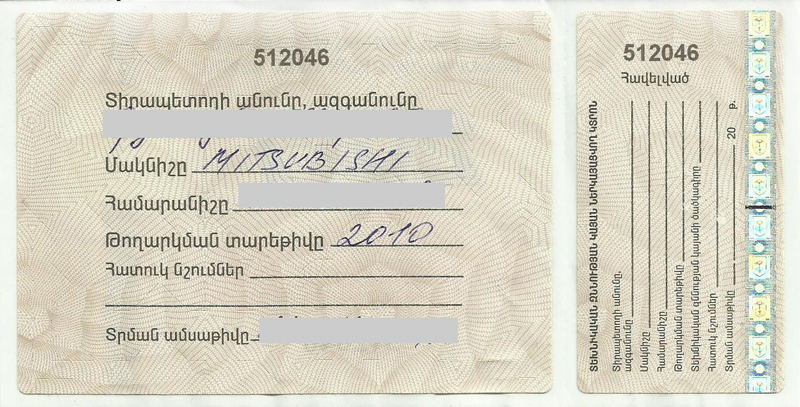 512046
Տիրապետողի անունը, ազգանունը
Մակնիշը MITSUBISHI
Համարանիշը
Թողարկման տարեթիվը 2010
Հատուկ նշումներ
Տրման ամսաթիվը
512046
Հավելված
ՏԵԽՆԻԿԱԿԱՆ ԶՆՆՈՒԹՅԱՆ ԿԱՅԱՆ ՆԵՐԿԱՅԱՑՎՈՂ ԿՏՐՈՆ
Տիրապետողի անունը,
ազգանունը
Մակնիշը
Համարանիշը
Թողարկման տարեթիվը
Տեխնիկական զննության կայանի ծածկագիրը
Հատուկ նշումներ
Տրման ամսաթիվը 20 թ.